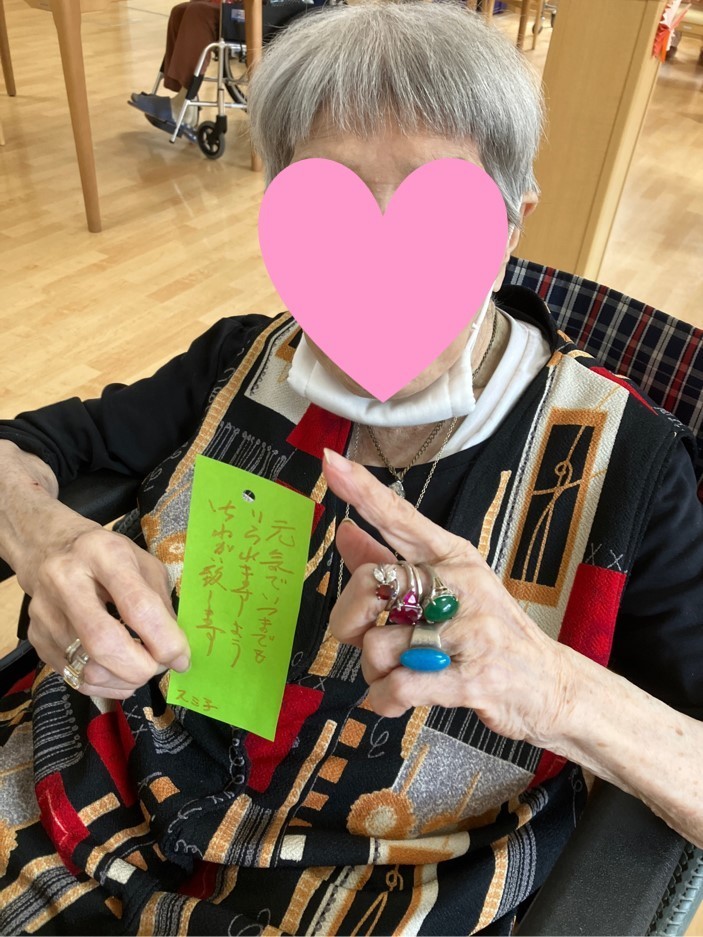 元気でいつまでも
いられますよう
お祈り致します
スミ子